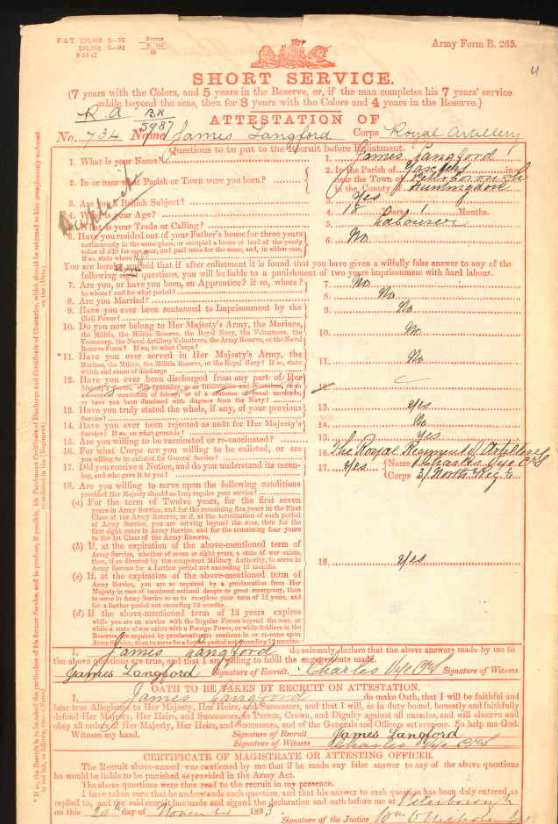 Army Form B. 265.
SHORT SERVICE.
(7 years with the Colors, and 5 years in the Reserve, or, if the man completes his 7 years' service
while beyond the seas, then for 8 years with the Colors and 4 years in the Reserve.)
R.A.
5987
ATTESTATION OF
No. 734 Name James Langford Corps Royal Artillery
Questions to be put to the Recruit before Enlistment.
1. What is your Name? 1. James Langford
2. In or near what Parish or Town were you born? 2. In the Parish of in or
near the Town of
in the County of Huntingdon
3. Are you a British Subject? 3. Yes
4. What is your Age? 4. 18 Years 1 Months.
5. What is your Trade or Calling? 5. Labourer
6. Have you resided out of your Father's house for three years
continuously in the same place, or occupied a house or land of the yearly
value of £10 for one year, and paid rates for the same, and, in either case,
if so, state where? 6. No
You are hereby warned that if after enlistment it is found that you have given a wilfully false answer to any of the
following questions, you will be liable to a punishment of two years imprisonment with hard labour.
7. Are you, or have you been, an Apprentice? if so, where?
to whom? and for what period? 7. No
8. Are you Married? 8. No
9. Have you ever been sentenced to Imprisonment by the
Civil Power? 9. No
10. Do you now belong to Her Majesty's Army, the Marines,
the Militia, the Militia Reserve, the Royal Navy, the Volunteers, the
Yeomanry, the Naval Artillery Volunteers, the Army Reserve, or the Naval
Reserve Force? If so, to what Corps? 10. No
*11. Have you ever served in Her Majesty's Army, the
Marines, the Militia, the Militia Reserve, or the Royal Navy? If so, state
which and cause of discharge 11. No
12. Have you ever been discharged from any part of Her
13. Have you truly stated the whole, if any, of your previous
Service? 13. Yes
14. Have you ever been rejected as unfit for Her Majesty's
Service? If so, on what grounds? 14. No
15. Are you willing to be vaccinated or re-vaccinated? 15. Yes
16. For what Corps are you willing to be enlisted, or are
you willing to be enlisted for General Service? 16. The Royal Regiment of Artillery
17. Did you receive a Notice, and do you understand its meaning,
and who gave it to you? 17. Yes Name Charles
Corps
18. Are you willing to serve upon the following conditions
provided Her Majesty should so long require your service?
(a) For the term of Twelve years, for the first seven
years in Army Service, and for the remaining five years in the First
Class of the Army Reserve, or if, at the termination of such period
of Army Service, you are serving beyond the seas, then for the
first eight years in Army Service, and for the remaining four years
in the 1st Class of the Army Reserve.
(b) If, at the expiration of the above-mentioned term of
Army Service, whether of seven or eight years, a state of war exists,
then, if so directed by the competent Military Authority, to serve in
Army Service for a further period not exceeding 12 months.
(c) If, at the expiration of the above-mentioned term of
Army Service, you are so required by a proclamation from Her
Majesty in case of imminent national danger or great emergency, then
to serve in Army Service so as to complete your term of 12 years, and
for a further period not exceeding 12 months.
(d) If the above-mentioned term of 12 years expires
while you are on service with the Regular Forces beyond the seas, or
while a state of war exists with a Foreign Power, or while Soldiers in the
Reserve are required by proclamation to continue in or re-enter upon
Army Service, then to serve for a further period not exceeding 12 months.
18. Yes
I, James Langford do solemnly declare that the above answers made by me to
the above questions are true, and that I am willing to fulfil the engagements made.
James Langford Signature of Recruit. Charles Signature of Witness.
OATH TO BE TAKEN BY RECRUIT ON ATTESTATION.
I, James Langford do make Oath, that I will be faithful and
bear true Allegiance to Her Majesty, Her Heirs, and Successors, and that I will, as in duty bound, honestly and faithfully
defend Her Majesty, Her Heirs, and Successors, in Person, Crown, and Dignity against all enemies, and will observe and
obey all orders of Her Majesty, Her Heirs, and Successors, and of the Generals and Officers set over me. So help me God.
Witness my hand. Signature of Recruit James Langford
Signature of Witness Charles
CERTIFICATE OF MAGISTRATE OR ATTESTING OFFICER.
The Recruit above-named was cautioned by me that if he made any false answer to any of the above questions
he would be liable to be punished as provided in the Army Act.
The above questions were then read to the recruit in my presence.
I have taken care that he understands each question, and that his answer to each question has been duly entered as
replied to, and the said recruit has made and signed the declaration and oath before me at Peterborough
on this 20th day of November 1893.
Signature of the Justice